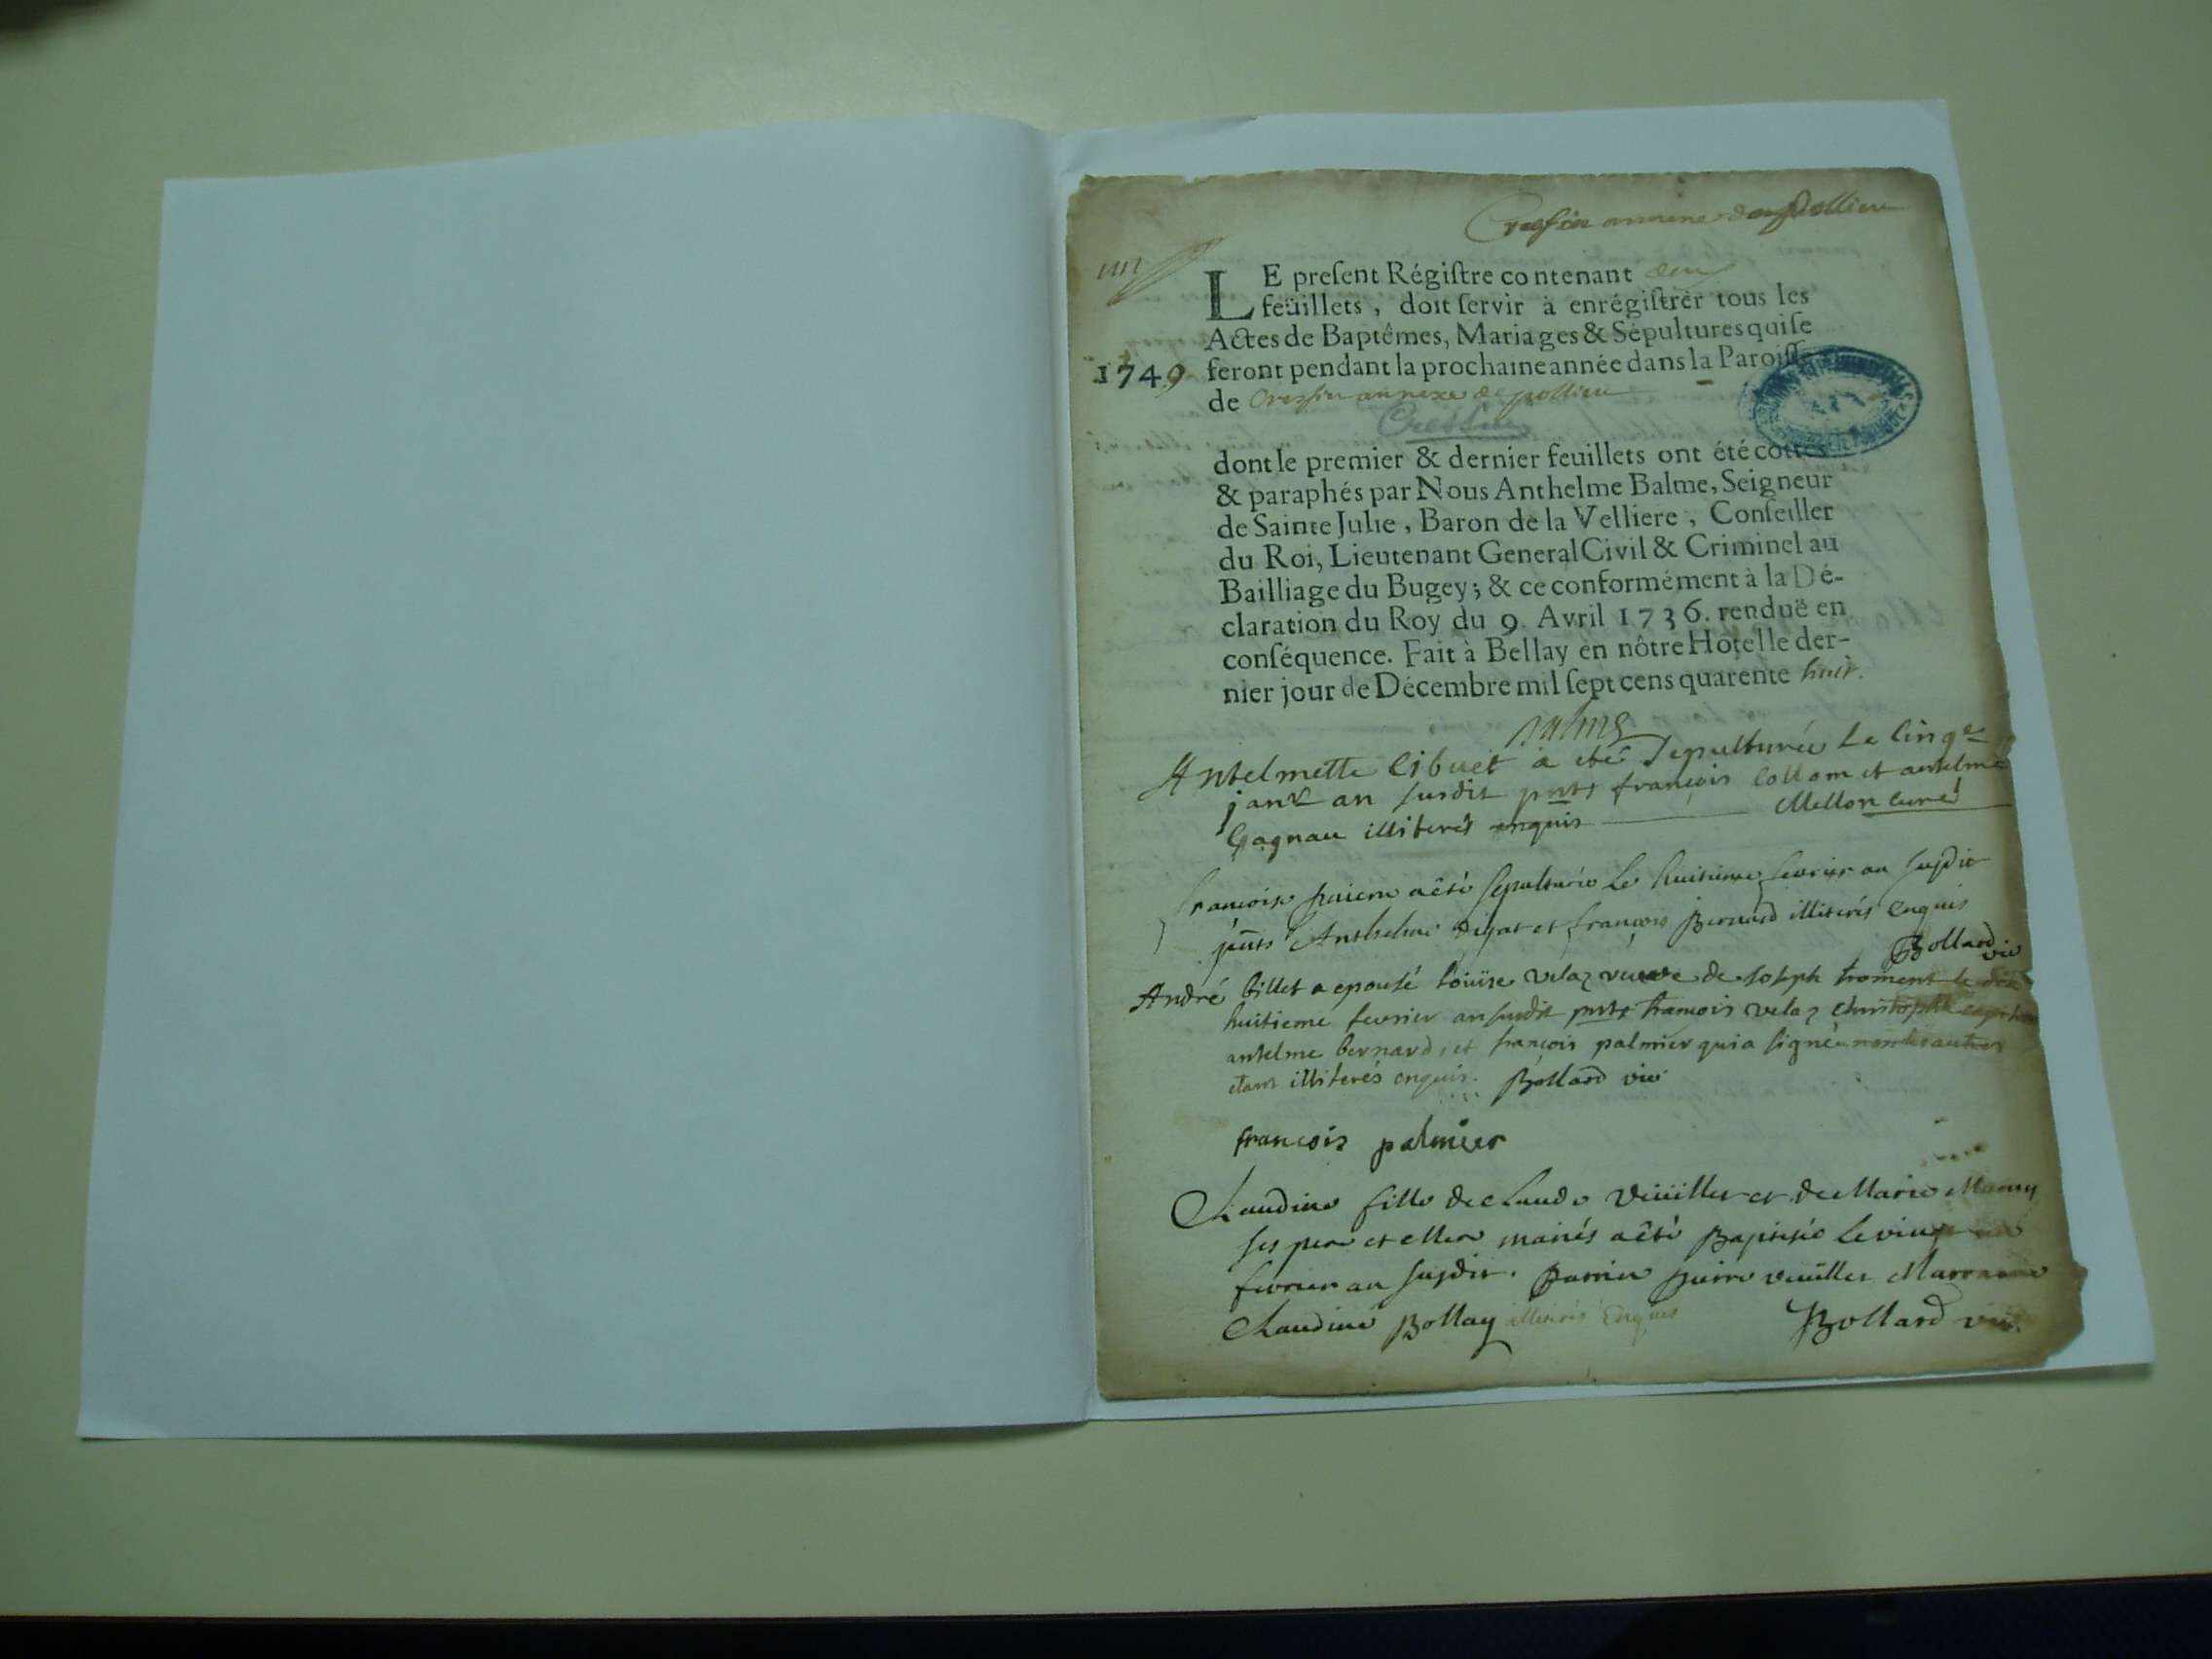 Cressin annexe de pollieu
un
LE preſent Régiſtre contenant deux
feüillets, doit ſervir à enrégiſtrer tous les
Actes de Baptêmes, Mariages & Sépultures qui ſe
1749 feront pendant la prochaine année dans la Paroiſſe
de Cressin annexe de pollieu
Cressin
dont le premier & dernier feuillets ont été cottés
& paraphés par Nous Anthelme Balme, Seigneur
de Sainte Julie, Baron de la Velliere, Conſeiller
du Roi, Lieutenant General Civil & Criminel au
Bailliage du Bugey; & ce conformément à la Dé-
claration du Roy du 9. Avril 1736. renduë en
conſéquence. Fait à Bellay en nôtre Hôtel le der-
nier jour de Décembre mil ſept cens quarente huit.
Balme
Antelmette Cibuet a eté sepulturée le cinqe
janvr an susdit pnts françois Collom et antelme
Gagnau illiterés enquis Mellon curé
françoise a êté sepulturée le huitieme fevrier an susdit
pnts Anthelme et françois Bernard illiterés enquis
Bollard vic
André billet a epousé loüise velaz veuve de Joseph froment le dix
huitieme fevrier an susdit pnts françois velaz Christophle
antelme bernard, et françois palmier qui a signé non les autres
etant illiterés enquis. Bollard vic
francois palmier
Claudine fille de claude Veüillet et de Marie
ses pere et Mere mariés a êté Baptisée le vingt
fevrier an susdit. Parrein pierre veüillet Marraine
Claudine Bollay illiterés Enquis Bollard vic.